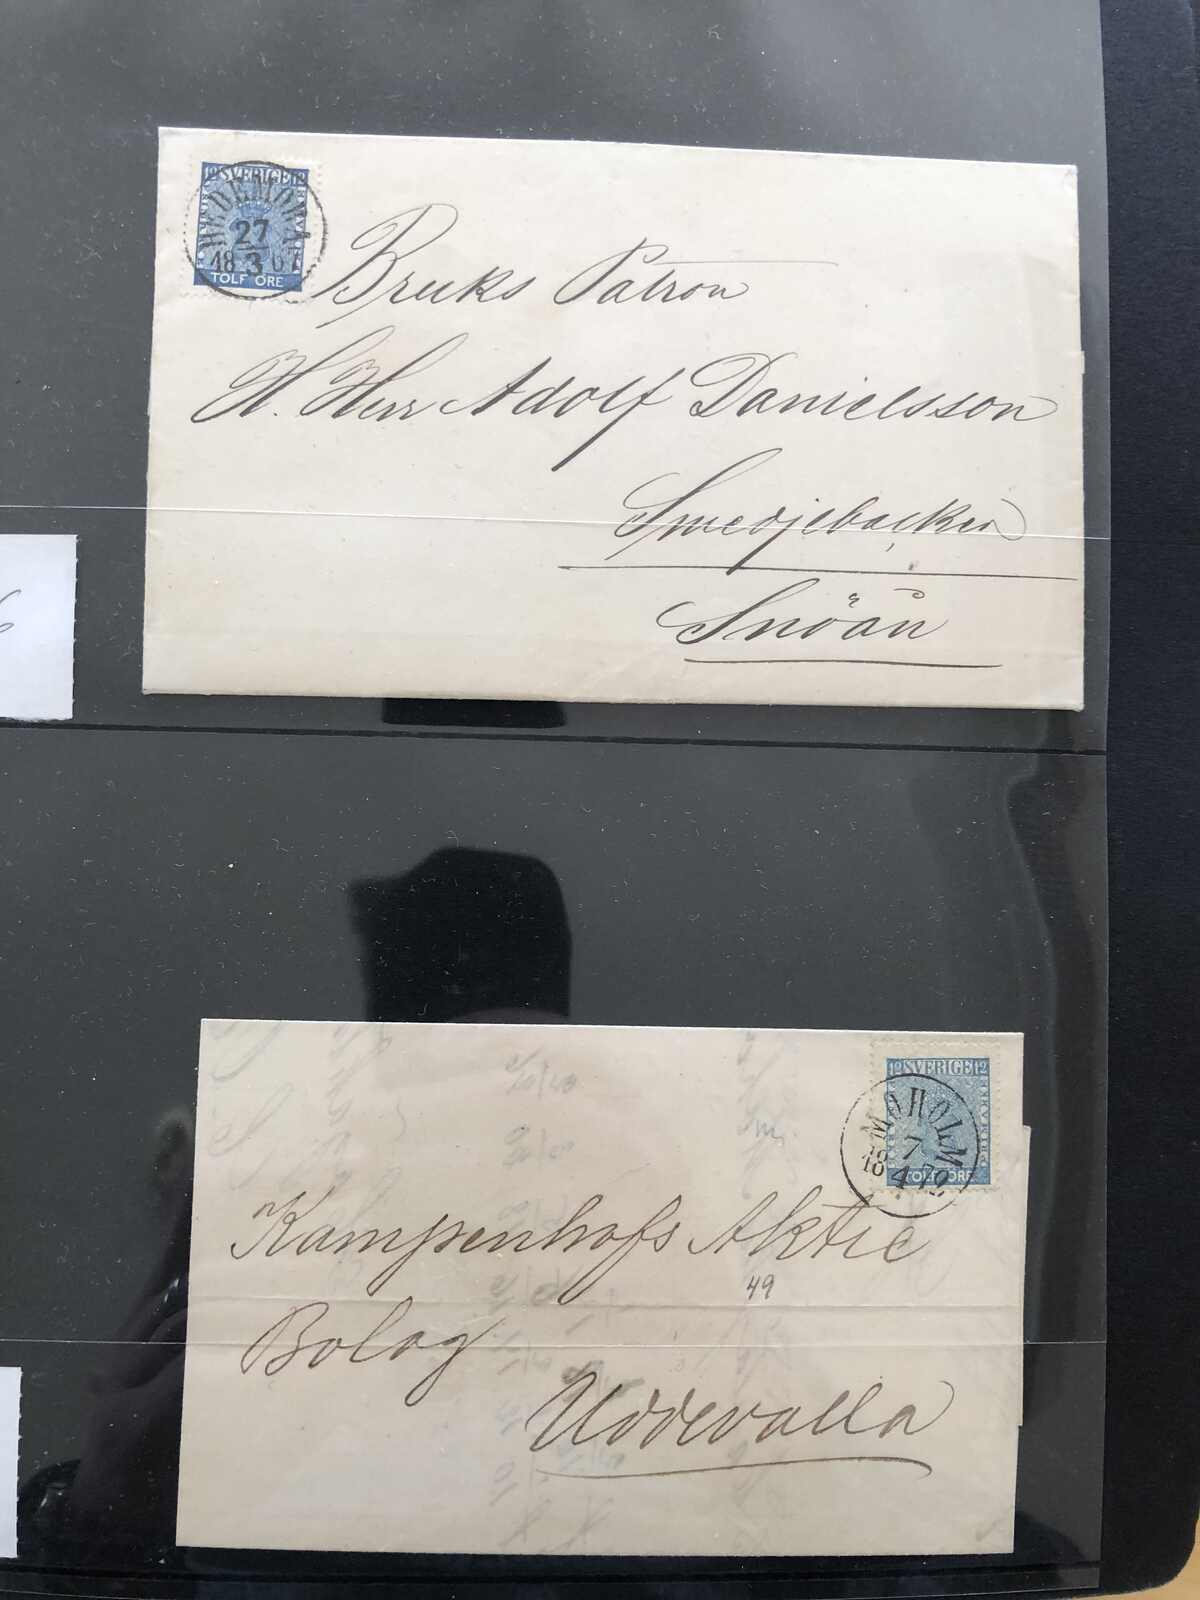 12 SVERIGE 12
HEDEMORA
27
18 3 67
TOLF ÖRE
Bruks Patron
H. Herr Adolf Danielsson
Smedjebacken
Snöån
6
12 SVERIGE 12
MOHOLM
7
18 4 72
TOLF ÖRE
Kampenhofs Aktie
49
Bolag
Uddevalla